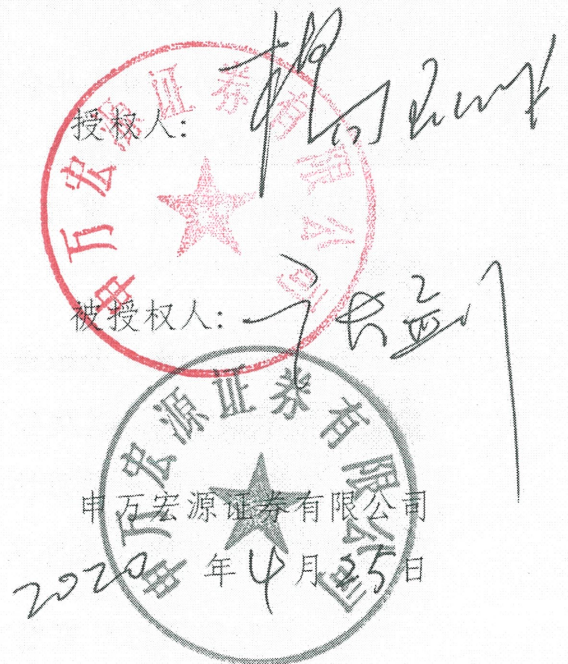 申万宏源证券有限公司
授权人:
被授权人:
申万宏源证券有限公司
申万宏源证券有限公司
2020年4月25日